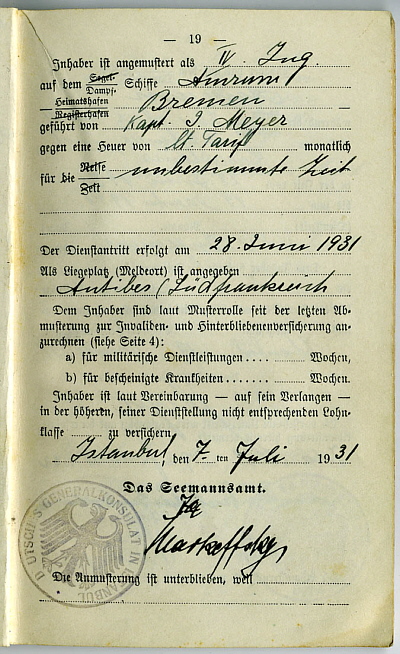 — 19 —
Inhaber ist angemustert als IV. Ing.
auf dem Segel- Dampf- Schiffe Amrum
Heimatshafen Registerhafen Bremen
geführt von Kapt. J. Meyer
gegen eine Heuer von lt. Tarif monatlich
für die Reise Zeit unbestimmte Zeit
Der Dienstantritt erfolgt am 28. Juni 1931
Als Liegeplatz (Meldeort) ist angegeben
Antibes (Südfrankreich
Dem Inhaber sind laut Musterrolle seit der letzten Ab-
musterung zur Invaliden- und Hinterbliebenenversicherung an-
zurechnen (siehe Seite 4):
a) für militärische Dienstleistungen .... Wochen,
b) für bescheinigte Krankheiten ....... Wochen.
Inhaber ist laut Vereinbarung — auf sein Verlangen —
in der höheren, seiner Dienststellung nicht entsprechenden Lohn-
klasse zu versichern.
Istanbul, den 7. ten Juli 1931
Das Seemannsamt.
DEUTSCHES GENERALKONSULAT IN ISTANBUL
Die Anmusterung ist unterblieben, weil